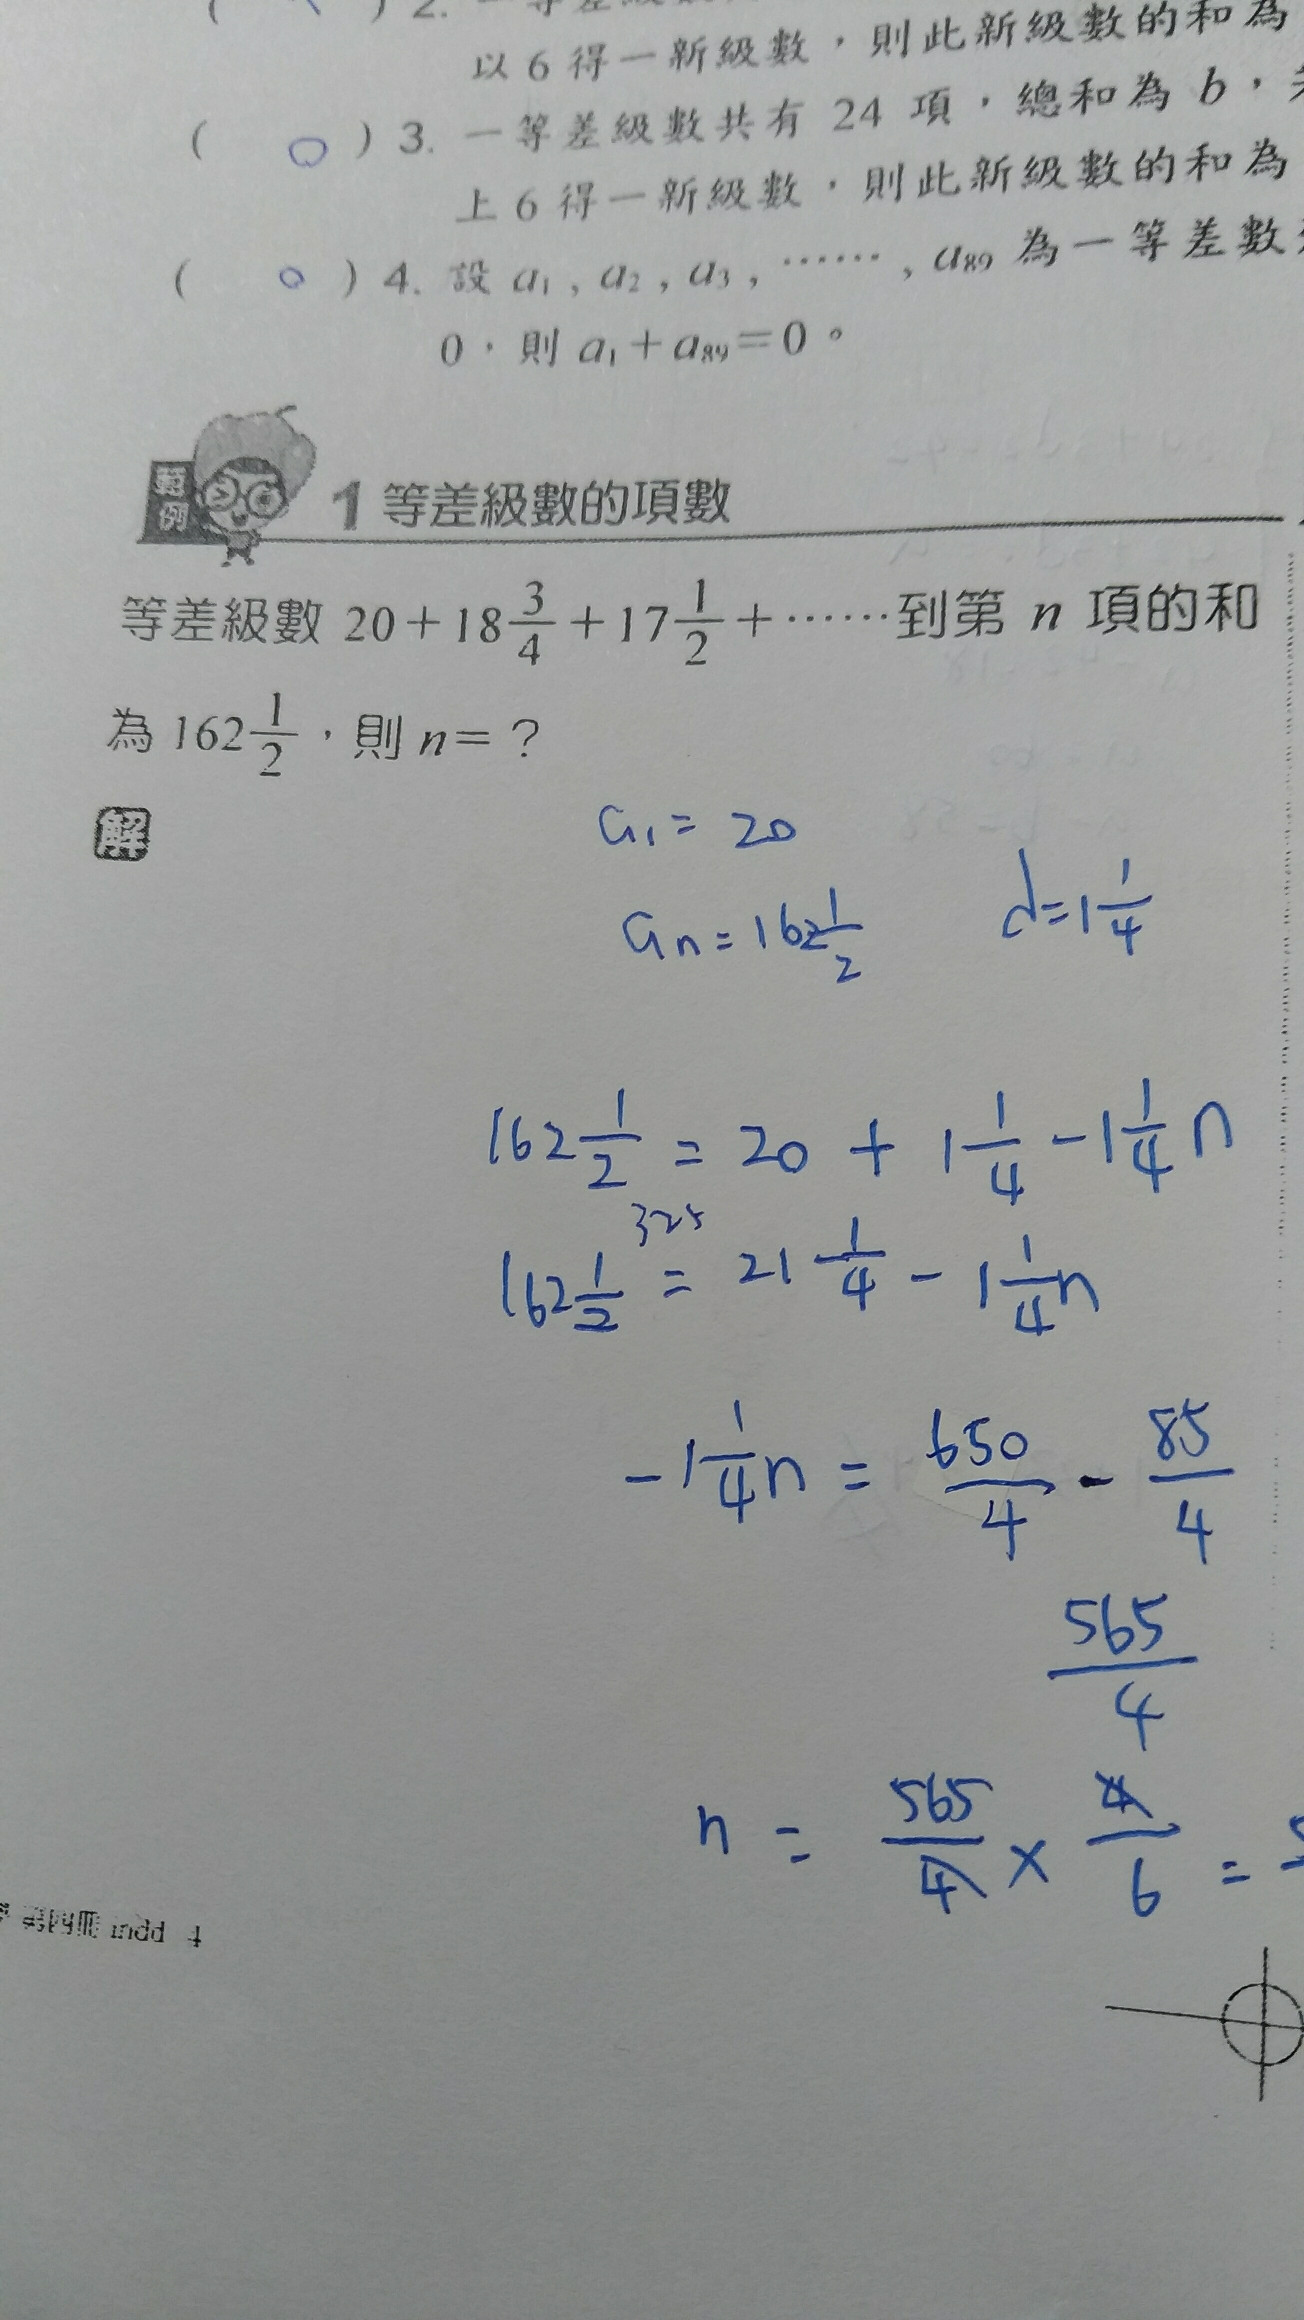 以 6 得一新級數，則此新級數的和為
( O ) 3. 一等差級數共有 24 項，總和為 b，
上 6 得一新級數，則此新級數的和為
( O ) 4. 設 a₁，a₂，a₃，……，a₈₉ 為一等差數
0，則 a₁＋a₈₉＝0。
範例 1 等差級數的項數
等差級數 20＋18 3/4＋17 1/2＋……到第 n 項的和
為 162 1/2，則 n＝？
解
a₁ = 20
aₙ = 162 1/2 d = 1 1/4
162 1/2 = 20 + 1 1/4 - 1 1/4 n
325
162 1/2 = 21 1/4 - 1 1/4 n
-1 1/4 n = 650/4 - 85/4
565/4
n = 565/4 × 4/6 =